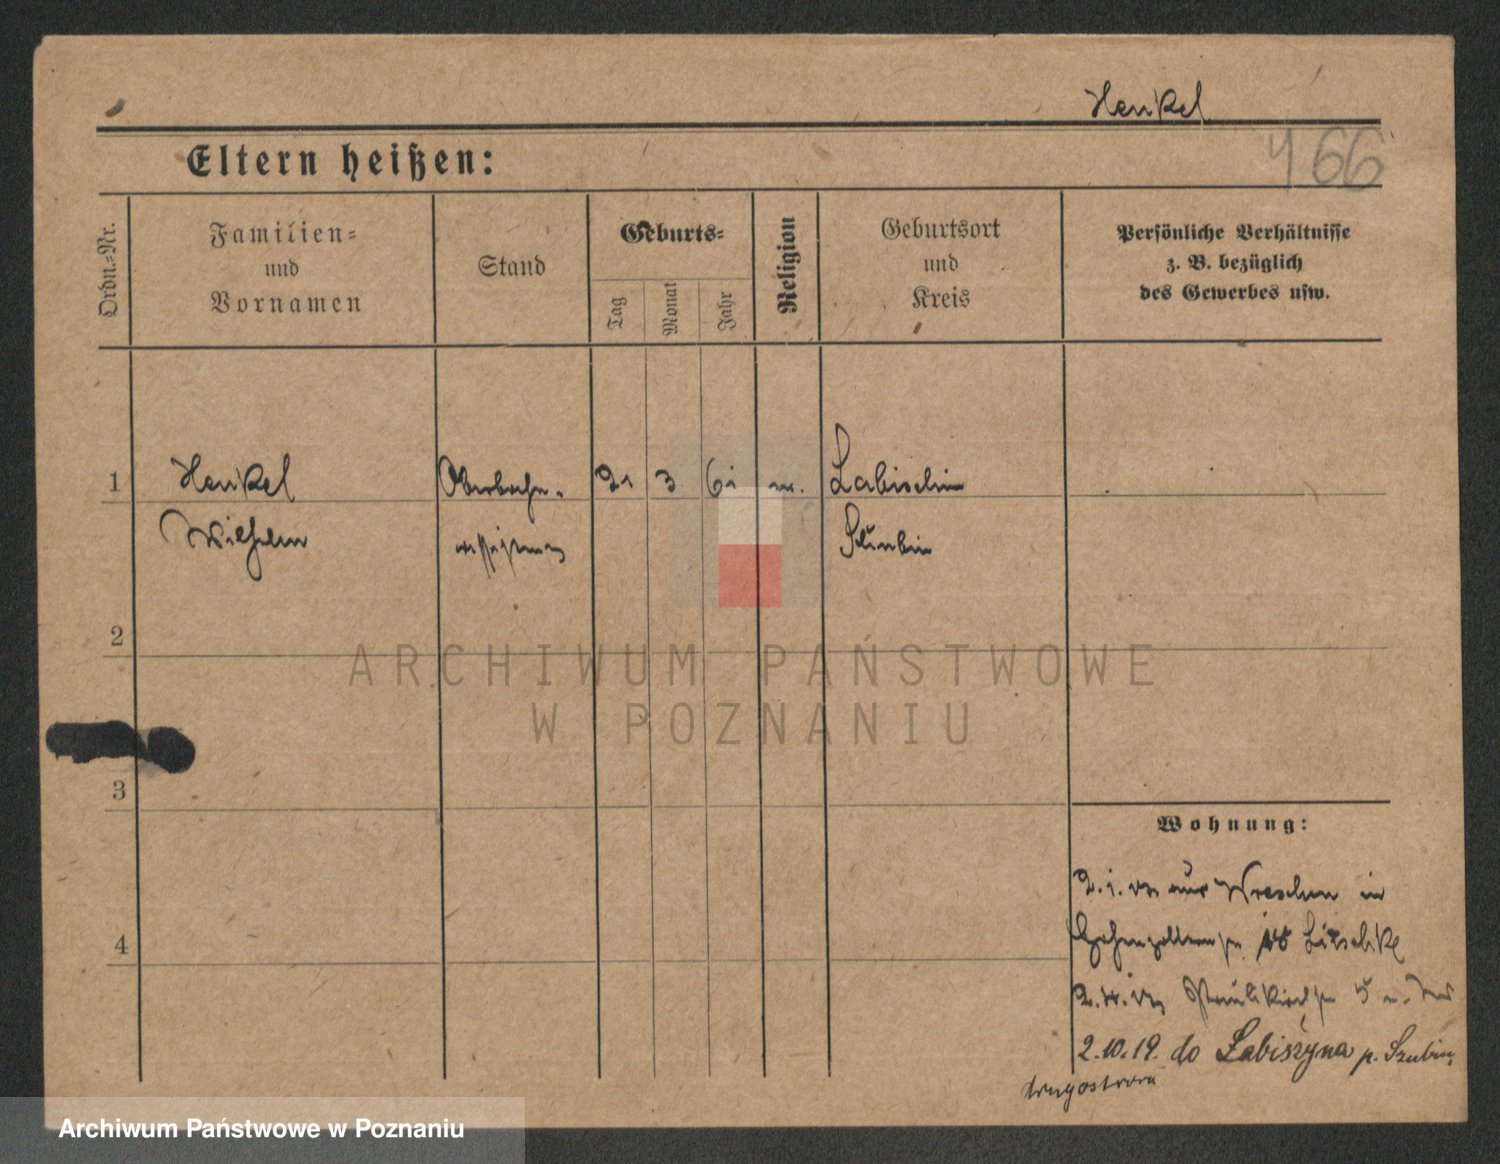 Henkel
166
Eltern heißen:
Ordn.-Nr.
Familien-
und
Vornamen
Stand
Geburts-
Tag
Monat
Jahr
Religion
Geburtsort
und
Kreis
Persönliche Verhältnisse
z. B. bezüglich
des Gewerbes usw.
1
Henkel
21 3
Labischin
Wilhelm
2
ARCHIWUM PAŃSTWOWE
W POZNANIU
3
Wohnung:
aus Wreschen in
4
Paulikirchstr 5
2.10.19. do Labiszyna p. Szubin
Archiwum Państwowe w Poznaniu